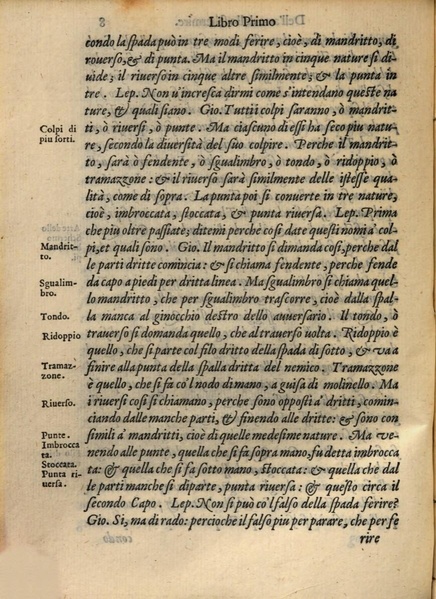 8 Libro Primo
condo la spada può in tre modi ferire, cioè, di mandritto, di
rouerso, & di punta. Ma il mandritto in cinque nature si di-
uide; il riuerso in cinque altre similmente; & la punta in
tre. Lep. Non u'incresca dirmi come s'intendano queste na
ture, & quali siano. Gio. Tutti i colpi saranno, ò mandrit-
ti, ò riuersi, ò punte. Ma ciascuno di essi ha seco piu natu-
Colpi di
piu forti.
re, secondo la diuersità del suo colpire. Perche il mandrit-
to, sarà ò fendente, ò sgualimbro, ò tondo, ò ridoppio, ò
tramazzone: & il riuerso sarà similmente delle istesse qua-
lità, come di sopra. La punta poi si conuerte in tre nature,
cioè, imbroccata, stoccata, & punta riuersa. Lep. Prima
che piu oltre passiate; ditemi perche così date questi nomi a' col-
Mandrit-
to.
pi, et quali sono. Gio. Il mandritto si dimanda così, perche dal
le parti dritte comincia: & si chiama fendente, perche fende
Sgualim-
bro.
da capo a piedi per dritta linea. Ma sgualimbro si chiama quel-
lo mandritto, che per sgualimbro trascorre, cioè dalla spal-
la manca al ginocchio destro dello auuersario. Il tondo, ò
Tondo.
trauerso si domanda quello, che al trauerso uolta. Ridoppio è
Ridoppio
quello, che si parte col filo dritto della spada di sotto, & ua a
finire alla punta della spalla dritta del nemico. Tramazzone
Tramaz-
zone.
è quello, che si fa co'l nodo di mano, a guisa di molinello. Ma
i riuersi così si chiamano, perche sono opposti a' dritti, comin-
Riuerso.
ciando dalle manche parti, & finendo alle dritte: & sono con
simili a' mandritti, cioè di quelle medesime nature. Ma ue-
Punte.
Imbrocca
ta.
nendo alle punte, quella che si fa sopra mano, fu detta imbrocca
ta: & quella che si fa sotto mano, stoccata: & quella che dal
Stoccata.
Punta ri-
uersa.
le parti manche si diparte, punta riuersa: & questo circa il
secondo Capo. Lep. Non si può co'l falso della spada ferire?
Gio. Si, ma di rado: percioche il falso piu per parare, che per fe
rire